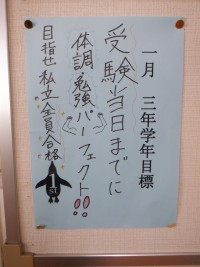 一月 三年学年目標
受験当日までに
体調・勉強パーフェクト!!
目指せ私立全員合格
1st